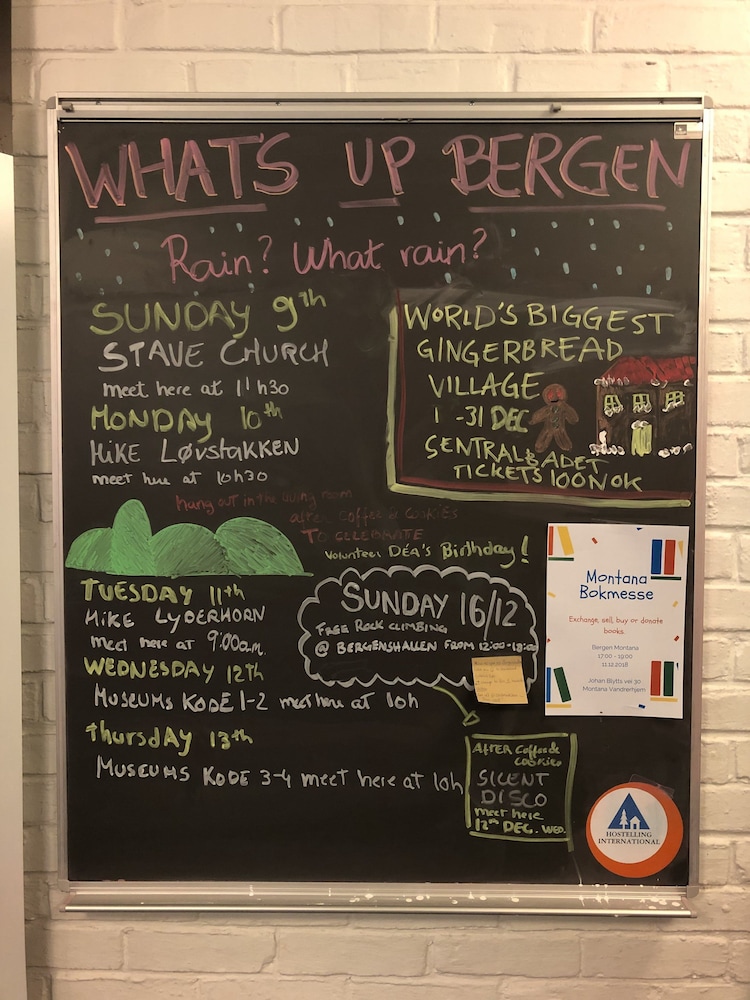 WHAT'S UP BERGEN
Rain? What rain?
SUNDAY 9th
STAVE CHURCH
meet here at 11h30
MONDAY 10th
HIKE LØVSTAKKEN
meet here at 10h30
WORLD'S BIGGEST
GINGERBREAD
VILLAGE
1 -31 DEC
SENTRALBADET
TICKETS 100NOK
hang out in the living room
after coffee & cookies
TO CELEBRATE
Volunteer DÉA'S Birthday!
TUESDAY 11th
HIKE LYDERHORN
meet here at 9:00a.m.
WEDNESDAY 12th
MUSEUMS KODE 1-2 meet here at 10h
Thursday 13th
MUSEUMS KODE 3-4 meet here at 10h
SUNDAY 16/12
FREE ROCK CLIMBING
@ BERGENSHALLEN FROM 12:00-18:00
Montana
Bokmesse
Exchange, sell, buy or donate
books.
Bergen Montana
17:00 - 19:00
11.12.2018
Johan Blytts vei 30
Montana Vandrerhjem
AFTER Coffee &
COOKIES
SILENT
DISCO
meet here
12th DEC. WED.
HOSTELLING
INTERNATIONAL